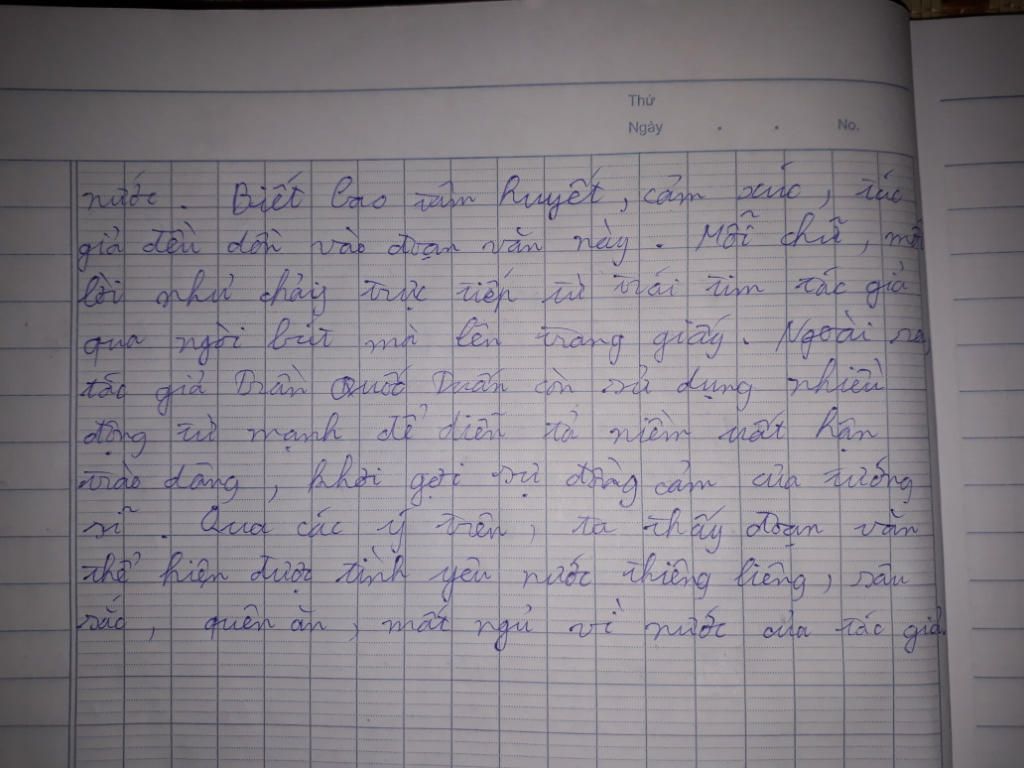 Thứ
Ngày . . No.
nước. Biết bao tâm huyết, cảm xúc, tác
giả đều dồn vào đoạn văn này. Mỗi chữ, mỗi
lời như chảy trực tiếp từ trái tim tác giả
qua ngòi bút mà lên trang giấy. Ngoài ra,
tác giả Trần Quốc Tuấn còn sử dụng nhiều
động từ mạnh để diễn tả niềm uất hận
trào dâng, khơi gợi sự đồng cảm của tướng
sĩ. Qua các ý trên, ta thấy đoạn văn
thể hiện được tình yêu nước thiêng liêng, sâu
sắc, quên ăn, mất ngủ vì nước của tác giả.